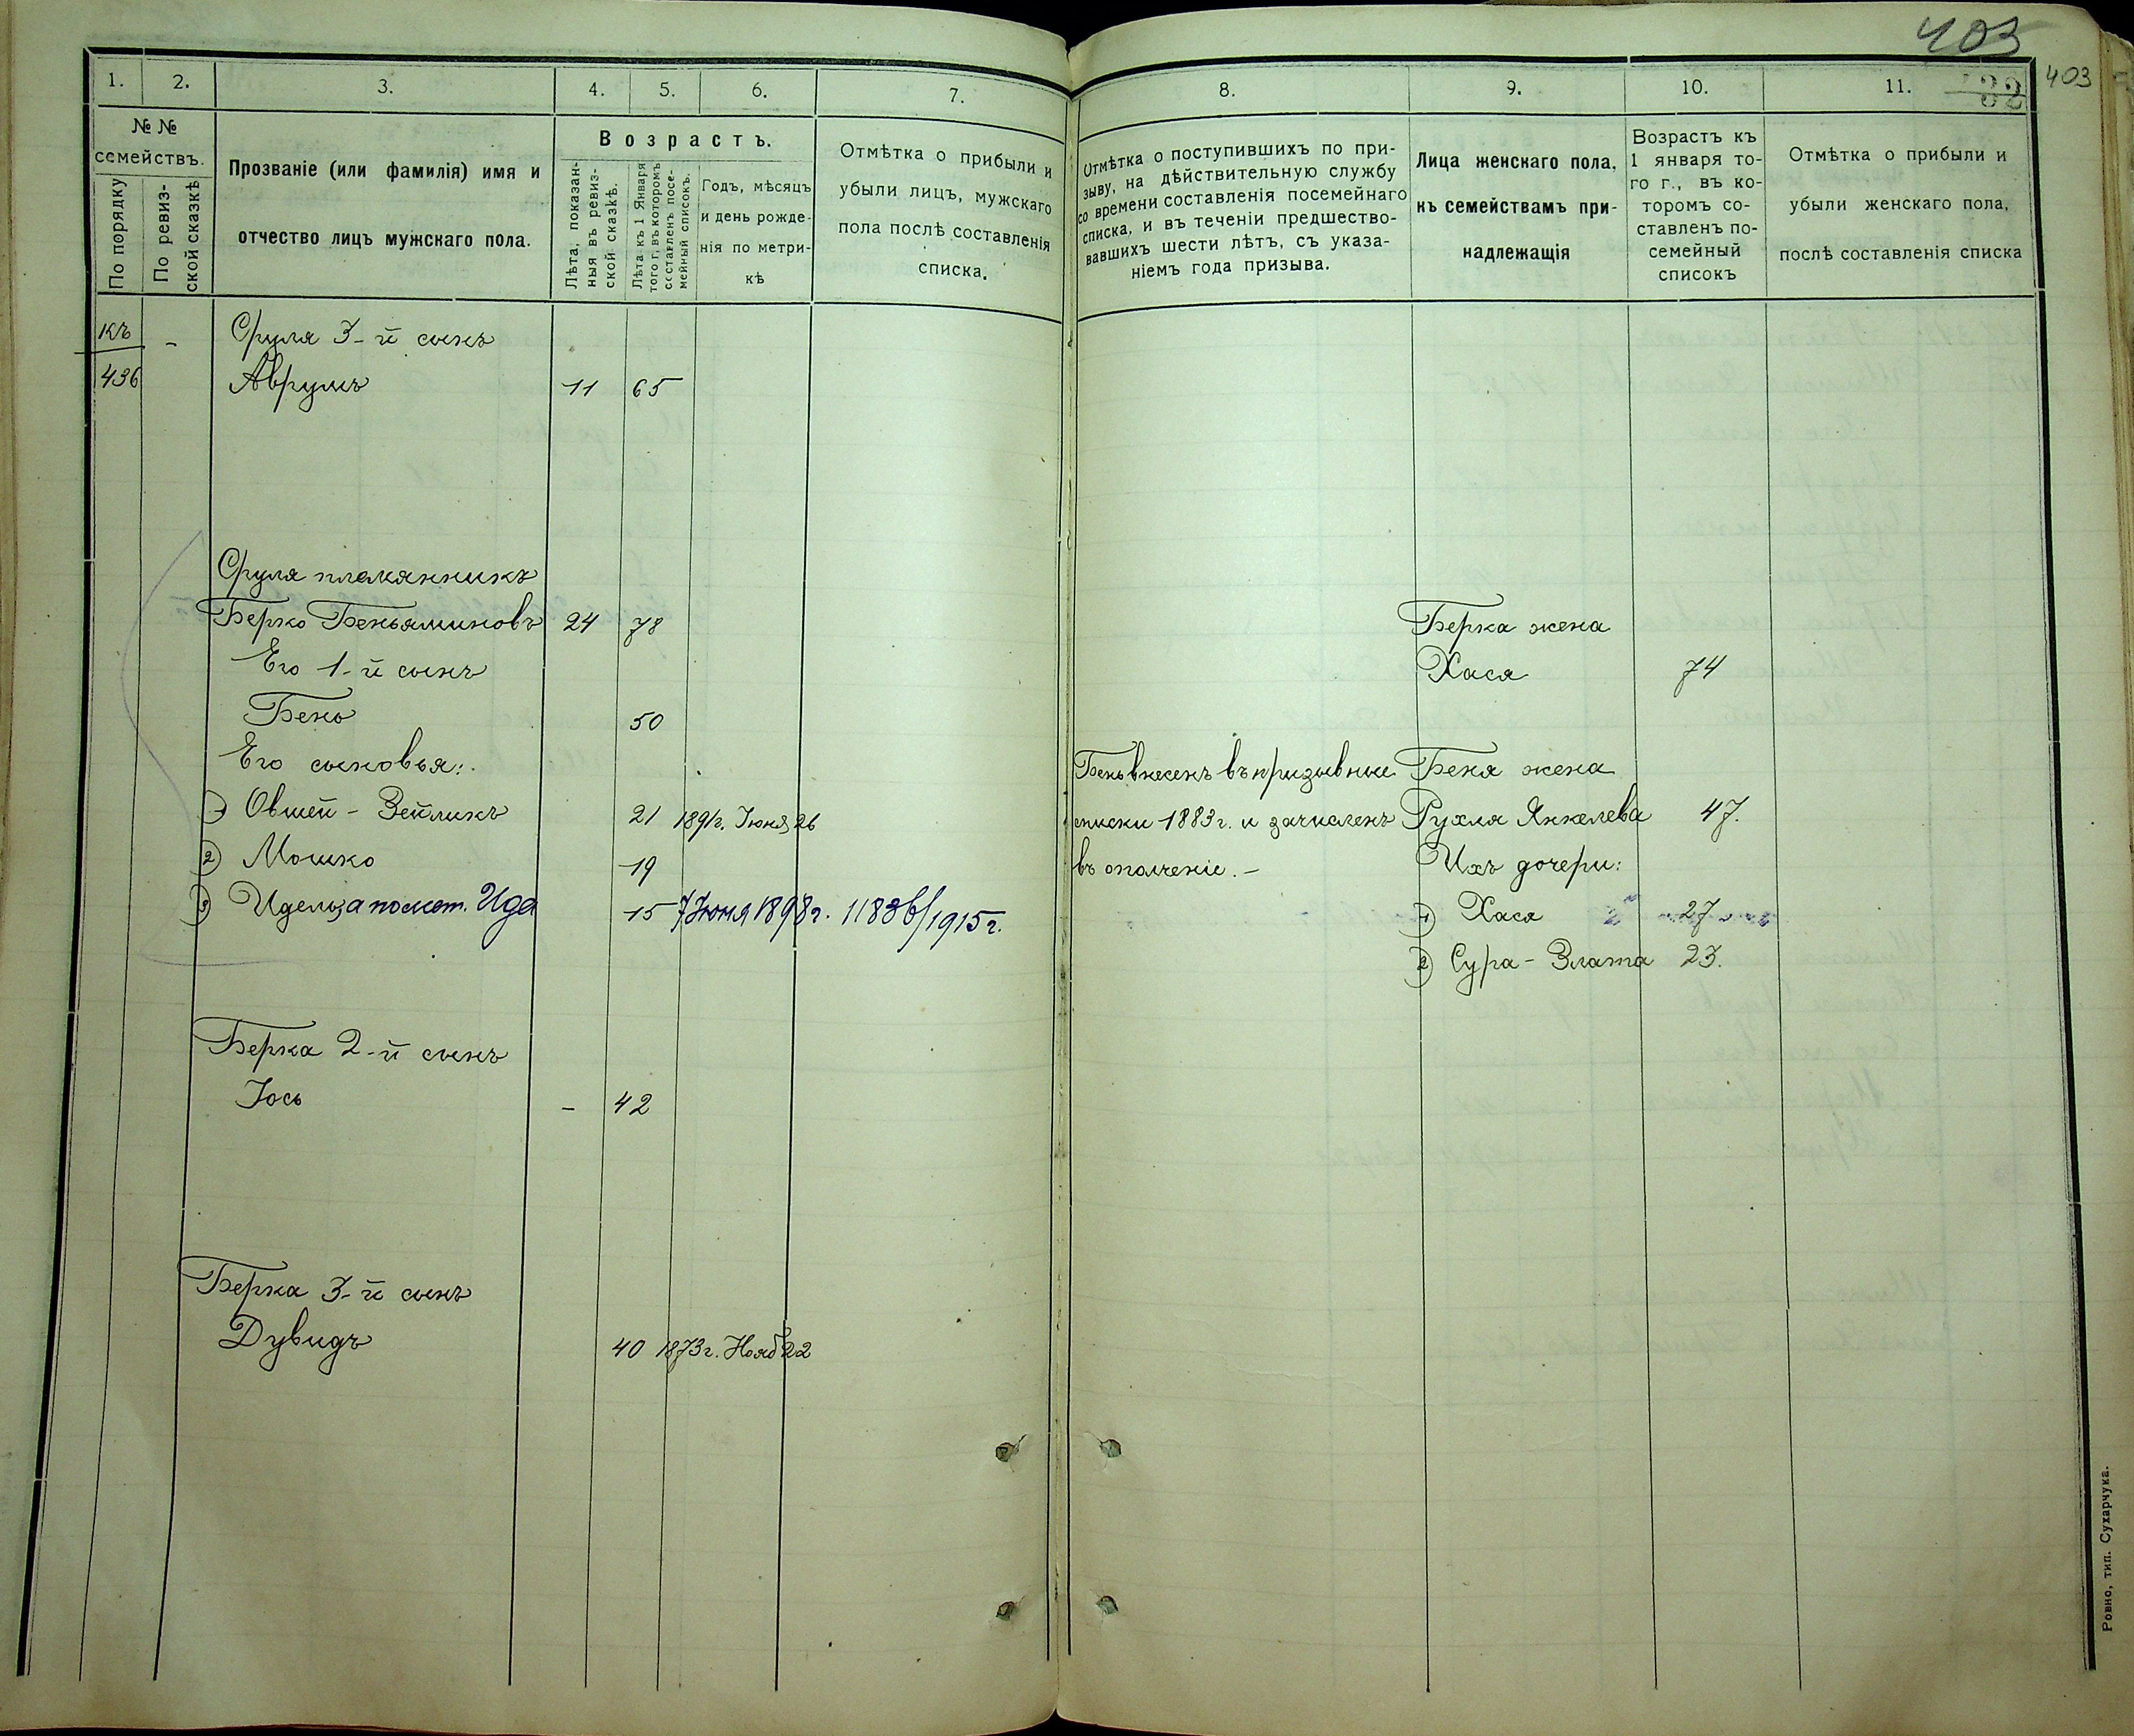 403
403
32
1.
2.
3.
4.
5.
6.
7.
№ №
семействъ.
По порядку
По ревиз-
ской сказкѣ
Прозваніе (или фамилія) имя и
отчество лицъ мужскаго пола.
Возрастъ.
Лѣта, показан-
ныя въ ревиз-
ской сказкѣ.
Лѣта къ 1 Января
того г. въ которомъ
составленъ посе-
мейный списокъ.
Годъ, мѣсяцъ
и день рожде-
нія по метри-
кѣ
Отмѣтка о прибыли и
убыли лицъ, мужскаго
пола послѣ составленія
списка.
къ - Сруля 3-й сынъ
436 Аврумъ 11 65
Сруля племянникъ
Берко Беньяминовъ 24 78
Его 1-й сынъ
Бень 50
Его сыновья:
1) Овшей-Зейликъ 21 1891г. Іюня 26
2) Мошко 19
3) Идель, а по мет. Ида 15 7 Іюня 1898г. 1183 в/1915г.
Берка 2-й сынъ
Іось - 42
Берка 3-й сынъ
Дувидъ 40 1873г. Нояб 22
8.
9.
10.
11.
Отмѣтка о поступившихъ по при-
зыву, на дѣйствительную службу
со времени составленія посемейнаго
списка, и въ теченіи предшество-
вавшихъ шести лѣтъ, съ указа-
ніемъ года призыва.
Лица женскаго пола,
къ семействамъ при-
надлежащія
Возрастъ къ
1 января то-
го г., въ ко-
торомъ со-
ставленъ по-
семейный
списокъ
Отмѣтка о прибыли и
убыли женскаго пола,
послѣ составленія списка
Берка жена
Хася 74
Бень внесенъ въ призывные Беня жена
списки 1883г. и зачисленъ Рухля Янкелева 47.
въ ополченіе.- Ихъ дочери:
1) Хася 27
2) Сура-Злата 23.
Ровно, тип. Сухарчука.